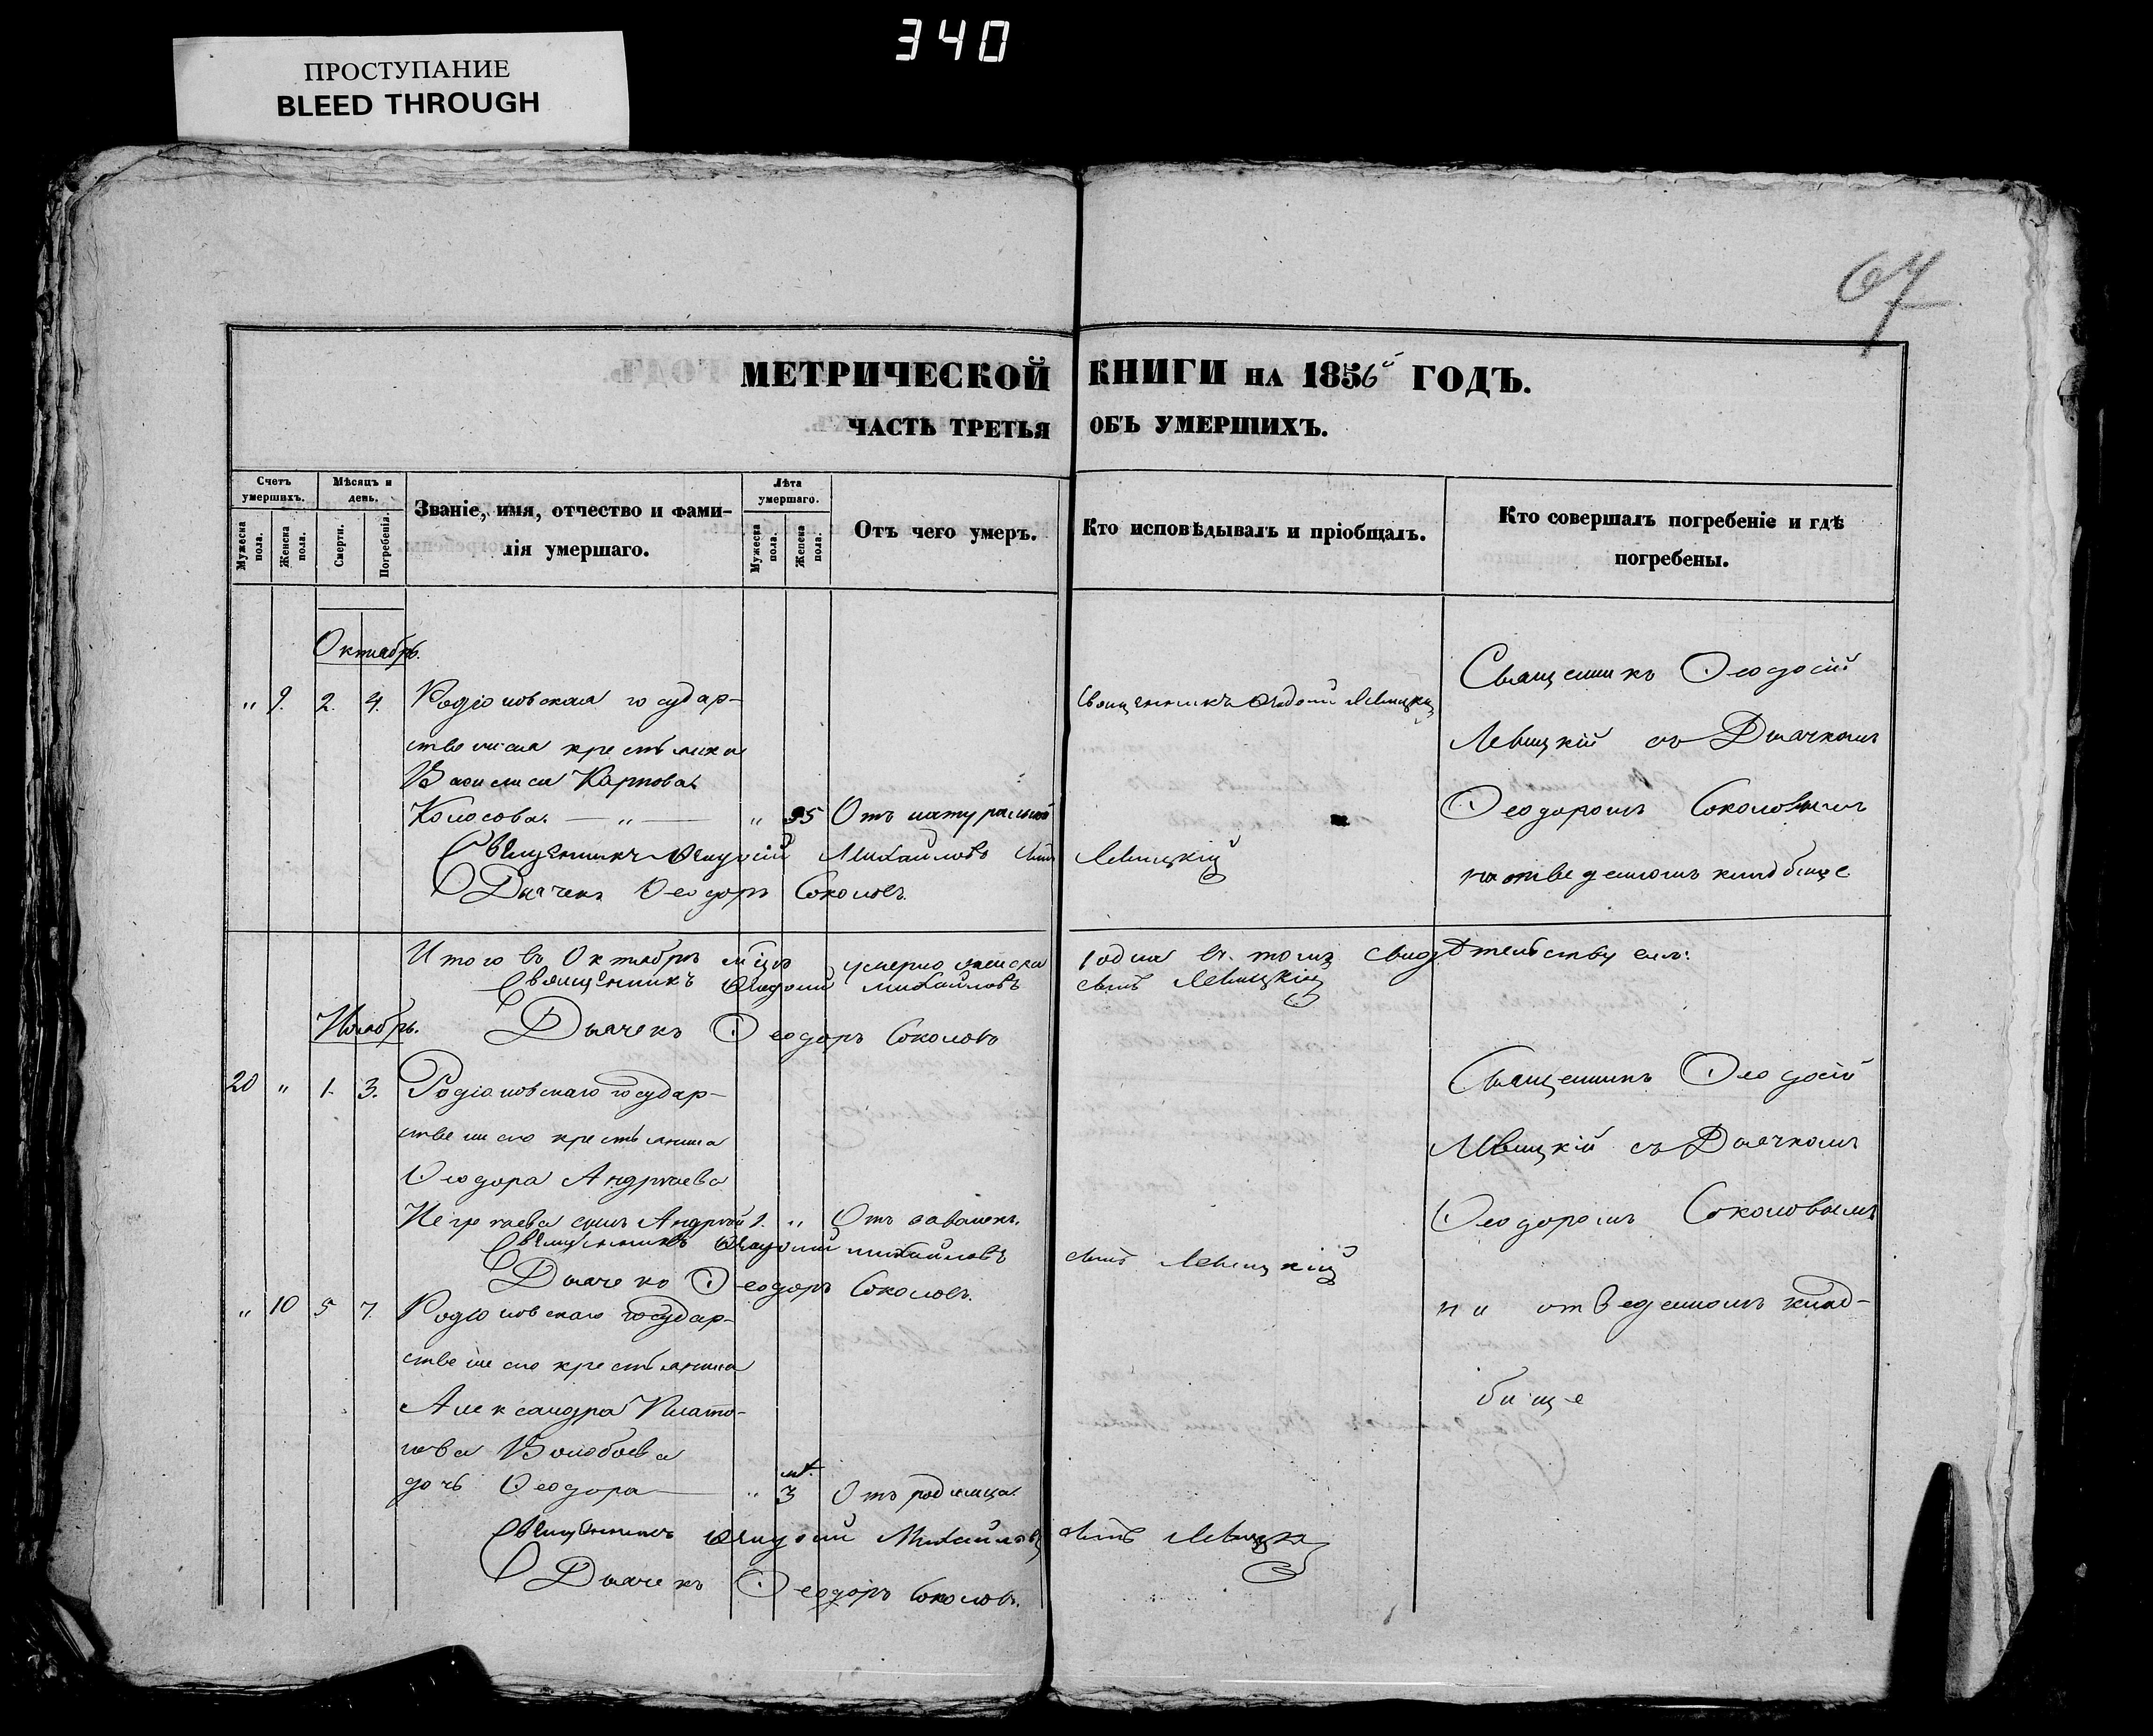 340
ПРОСТУПАНИЕ
BLEED THROUGH
67
МЕТРИЧЕСКОЙ КНИГИ НА 1856й ГОДЪ.
ЧАСТЬ ТРЕТЬЯ ОБЪ УМЕРШИХЪ.
Счетъ умершихъ.
Мужеска пола.
Женска пола.
Мѣсяцъ и день.
Смерти.
Погребенія.
Званіе, имя, отчество и фами-
лія умершаго.
Лѣта умершаго.
Мужеска пола.
Женска пола.
Отъ чего умеръ.
Кто исповѣдывалъ и пріобщалъ.
Кто совершалъ погребеніе и гдѣ
погребены.
Октябрь.
" 9. 2. 4. Родіоновская государ-
ственная крестьянка
Василиса Карпова
Колосова. — " — " 95 Отъ натуральной
Священникъ Ѳеодосій Левицкій
Священникъ Ѳеодосій
Левицкій съ Дьячкомъ
Ѳеодоромъ Соколовымъ
на отведенномъ кладбище
Священникъ Ѳеодосій Михайловъ сынъ Левицкій
Дьячекъ Ѳеодоръ Соколовъ.
Итого въ Октябрѣ м͠цѣ умерло женска 1 одна въ томъ свидѣтельствуемъ:
Священникъ Ѳеодосій Михайловъ сынъ Левицкій
Дьячекъ Ѳеодоръ Соколовъ
Ноябрь.
20 " 1. 3. Родіоновскаго государ-
ственнаго крестьянина
Ѳеодора Андреева
сынъ Андрей 1. " Отъ
Священникъ Ѳеодосій
Левицкій съ Дьячкомъ
Ѳеодоромъ Соколовымъ
на отведенномъ клад-
бище
Священникъ Ѳеодосій Михайловъ сынъ Левицкій
Дьячекъ Ѳеодоръ Соколовъ.
" 10 5 7. Родіоновскаго государ-
ственнаго крестьянина
Александра Плато-
нова Волобоева
дочь Ѳеодора — " 3 м. Отъ родимца.
Священникъ Ѳеодосій Михайловъ сынъ Левицкій
Дьячекъ Ѳеодоръ Соколовъ.